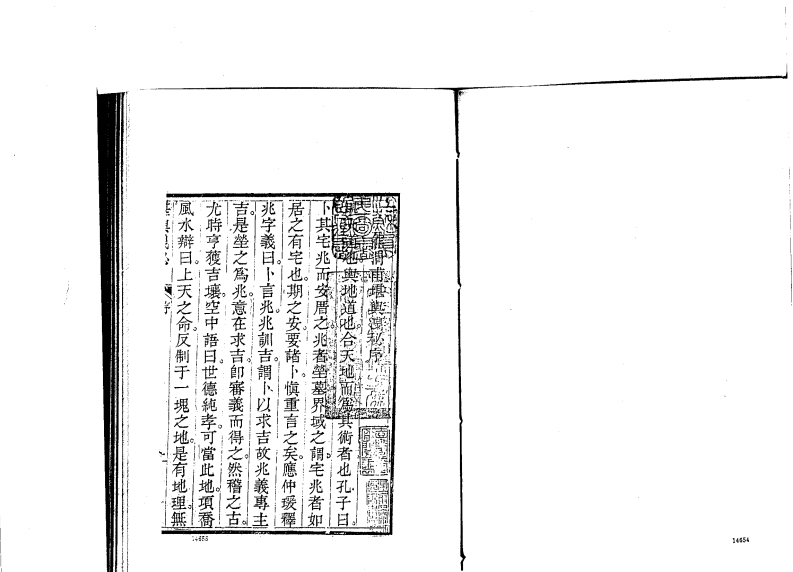 堪輿洩秘序
地輿地道也合天地而爲其術者也孔子曰
卜其宅兆而安厝之兆者塋墓界域之謂宅兆者如
居之有宅也期之安要諸卜愼重言之矣應仲瑗釋
兆字義曰卜言兆兆訓吉謂卜以求吉故兆義專主
吉是塋之爲兆意在求吉卽審義而得之然稽之古
尤時亨獲吉壤空中語曰世德純孝可當此地項喬
風水辯曰上天之命反制于一塊之地是有地理無
序
14655
14654